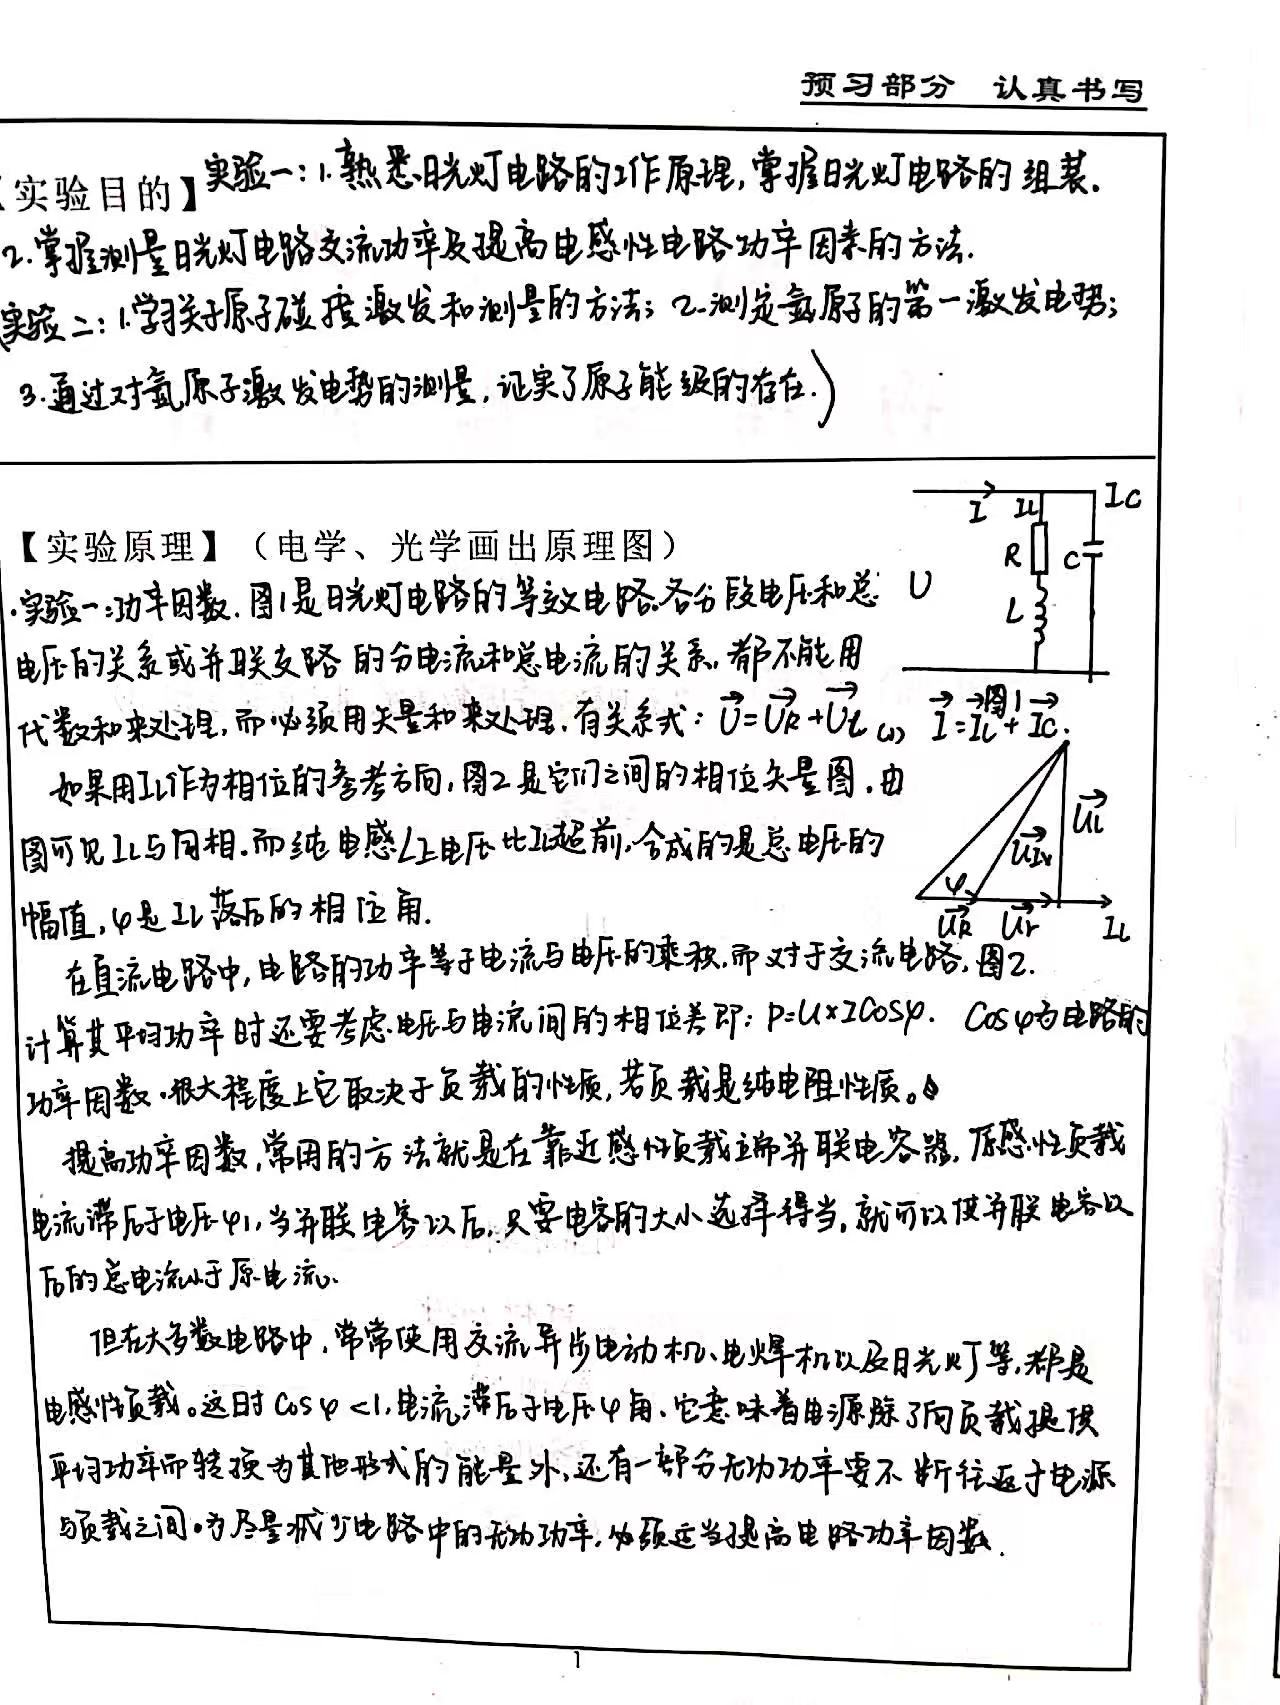 预习部分 认真书写
【实验目的】实验一:1.熟悉日光灯电路的工作原理,掌握日光灯电路的组装.
2.掌握测量日光灯电路交流功率及提高电感性电路功率因素的方法.
实验二:1.学习关于原子碰撞激发和测量的方法;2.测定氩原子的第一激发电势;
3.通过对氩原子激发电势的测量,证实了原子能级的存在.)
【实验原理】(电学、光学画出原理图)
I IL IC
R C
U
L
图1
·实验一:功率因数.图1是日光灯电路的等效电路.各分段电压和总
电压的关系或并联支路的分电流和总电流的关系,都不能用
代数和来处理,而必须用矢量和来处理.有关系式:U=UR+UL (1) I=IL+IC.
如果用IL作为相位的参考方向,图2是它们之间的相位矢量图.由
图可见IL与同相.而纯电感L上电压比IL超前,合成的是总电压的
幅值,φ是IL落后的相位角.
UL
φ
UR Ur IL
图2.
在直流电路中,电路的功率等于电流与电压的乘积.而对于交流电路,
计算其平均功率时还要考虑电压与电流间的相位差即:P=U×ICosφ. Cosφ为电路的
功率因数.很大程度上它取决于负载的性质,若负载是纯电阻性质。
提高功率因数,常用的方法就是在靠近感性负载端并联电容器,原感性负载
电流滞后于电压φ1,当并联电容以后,只要电容的大小选择得当,就可以使并联电容以
后的总电流小于原电流.
但在大多数电路中,常常使用交流异步电动机、电焊机以及日光灯等,都是
电感性负载。这时Cosφ<1,电流滞后于电压φ角.它意味着电源除了向负载提供
平均功率而转换为其他形式的能量外,还有一部分无功功率要不断往返于电源
与负载之间.为尽量减少电路中的无功功率,必须适当提高电路功率因数.
1